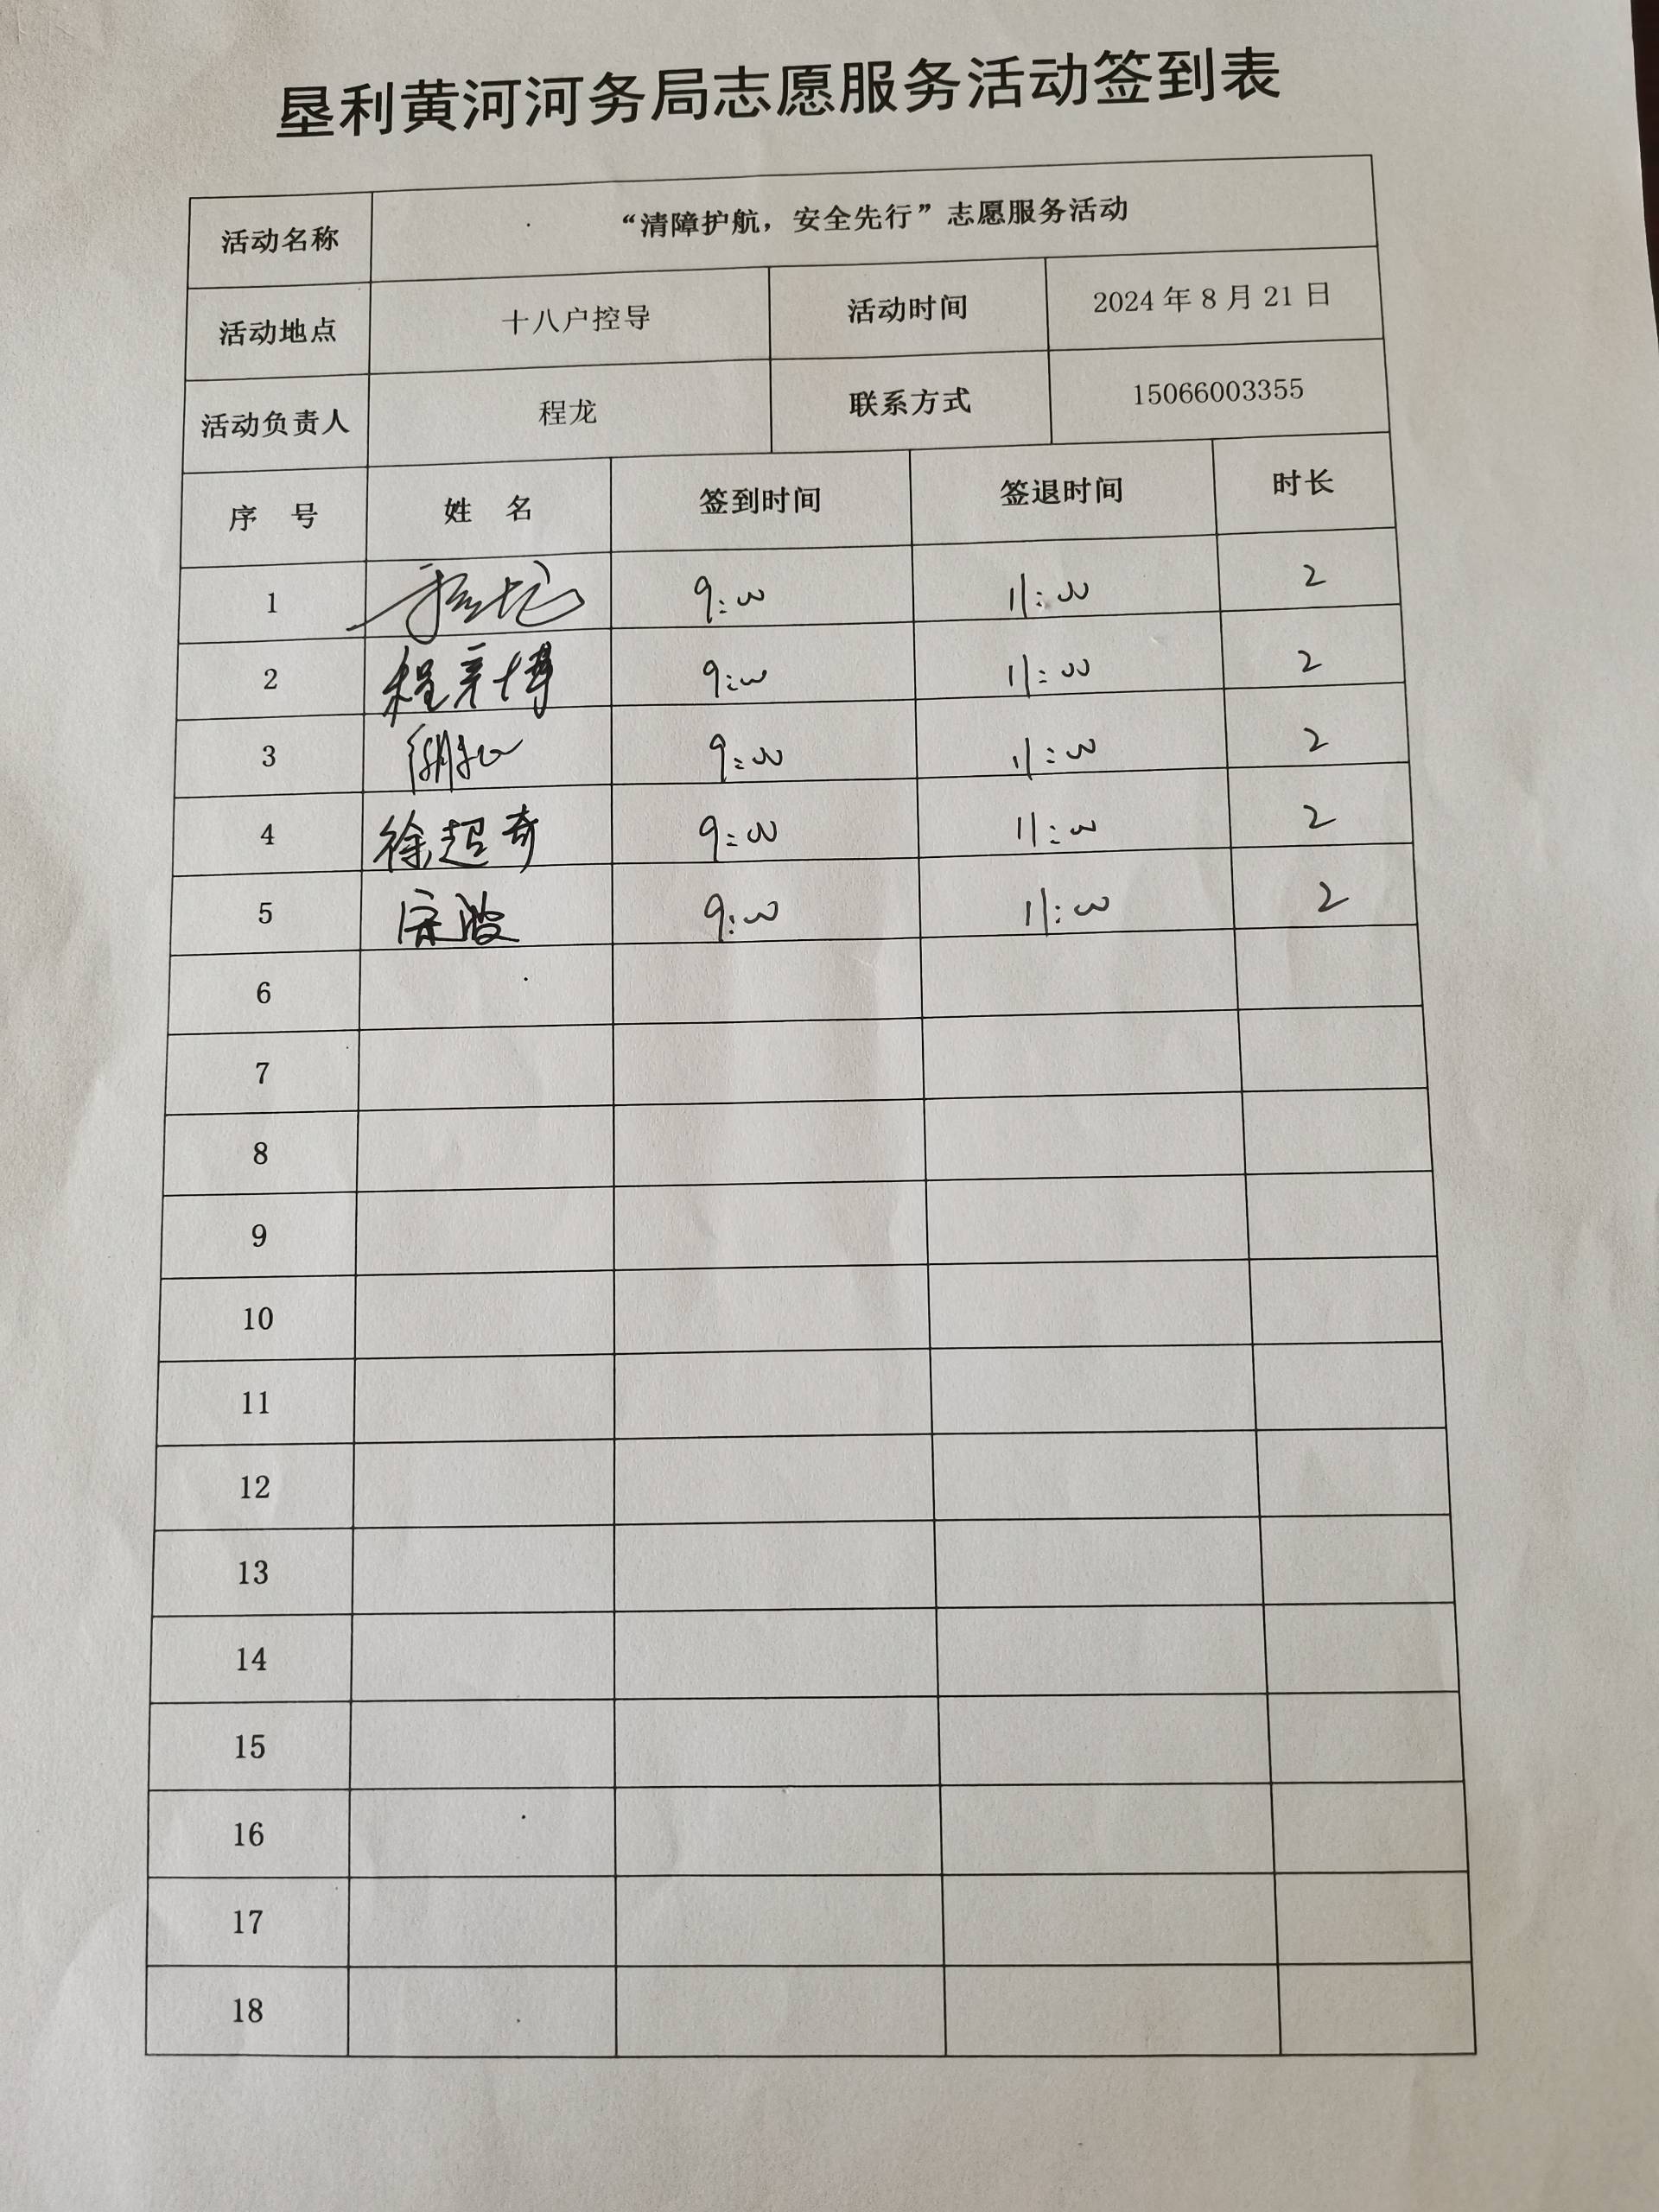 垦利黄河河务局志愿服务活动签到表
活动名称 “清障护航，安全先行”志愿服务活动
活动地点 十八户控导 活动时间 2024 年 8 月 21 日
活动负责人 程龙 联系方式 15066003355
序 号 姓 名 签到时间 签退时间 时长
1 程龙 9:00 11:00 2
2 9:00 11:00 2
3 9:00 11:00 2
4 徐超奇 9:00 11:00 2
5 宗波 9:00 11:00 2
6
7
8
9
10
11
12
13
14
15
16
17
18